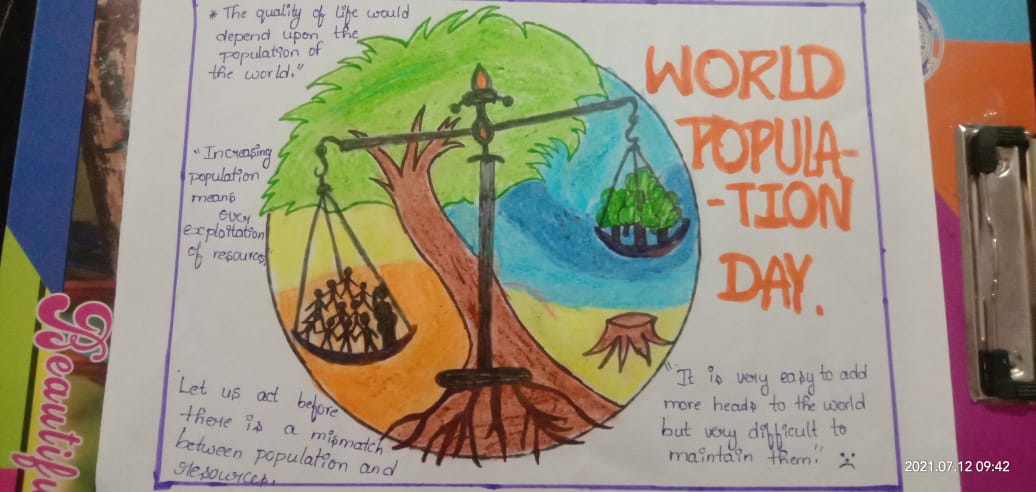 * The quality of life would
depend upon the
population of
the world."
WORLD
POPULA-
-TION
DAY.
"Increasing
population
means
over
exploitation
of resources"
Let us act before
there is a mismatch
between population and
resources.
"It is very easy to add
more heads to the world
but very difficult to
maintain them."
Beautiful
2021.07.12 09:42